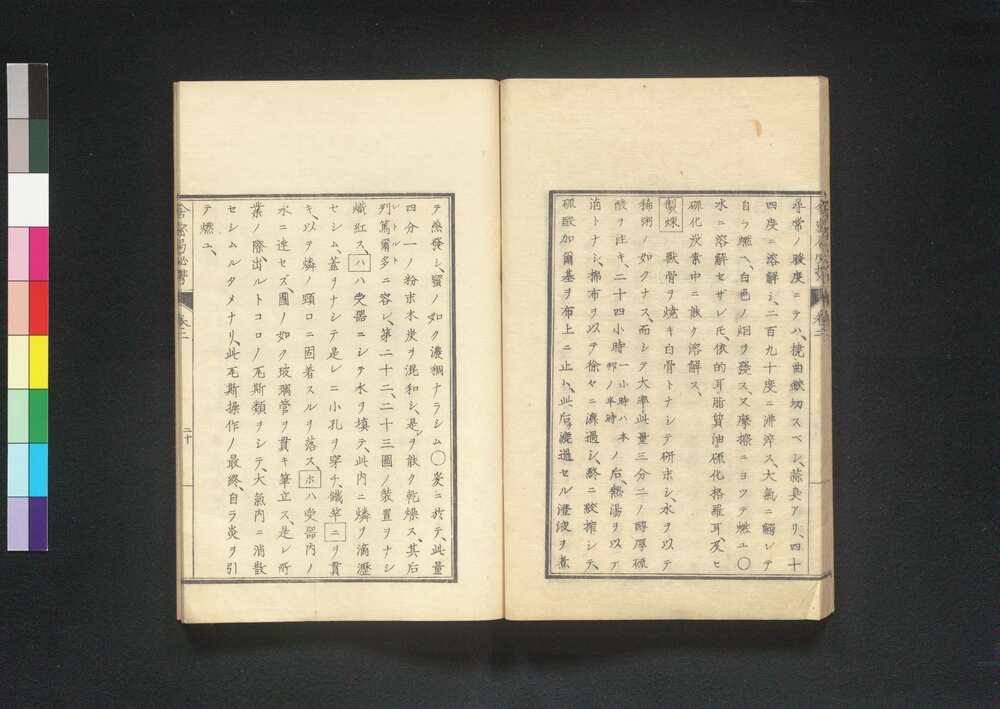 尋常ノ驗度ニテハ、撓曲缺切スベシ、蒜臭アリ、四十
四度ニ溶解シ、二百九十度ニ沸滓ス、大氣ニ觸レテ
自ラ燃ヘ、白色ノ烟ヲ發ス、又摩擦ニヨツテ燃ユ〇
水ニ溶解セザレ氏依的耳脂質油硫化格羅耳、及ヒ
硫化炭素中ニ能ク溶解ス、
製煉 獸骨ヲ燒キ白骨トナシテ研末シ、水ヲ以テ
稀粥ノ如クナス、而シテ大率此量三分二ノ醇厚硫
酸ヲ注キ、二十四小時一小時ハ本邦ノ半時ノ后、熱湯ヲ以テ
泊トナシ、棉布ヲ以テ徐々ニ濾過シ、終ニ絞搾シテ、
硫酸加爾基ヲ布上ニ止ム、此后濾過セル澄液ヲ煮
テ蒸發シ、蜜ノ如ク濃稠ナラシム〇爰ニ於テ、此量
四分一ノ粉末木炭ヲ混和シ、是レヲ能ク乾燥ス、其后
列篤爾多レトルトニ容レ、第二十二、二十三圖ノ裝置ヲナシ
熾紅ス、ハハ受器ニシテ水ヲ填テ、此内ニ燐ヲ滴瀝
セシム、蓋ヲナシテ是レニ小孔ヲ穿チ、鐵竿ニヲ貫
キ、以テ燐ノ頸口ニ固着スルヲ落ス、ホハ受器内ノ
水ニ達セズ、圖ノ如ク玻璃管ヲ貫キ筆立ス、是レ所
業ノ際、出ルトコロノ瓦斯類ヲシテ、大氣内ニ消散
セシムルタメナリ、此瓦斯操作ノ最終、自ラ炎ヲ引
テ燃ユ、
舍密局必携 卷二 二十